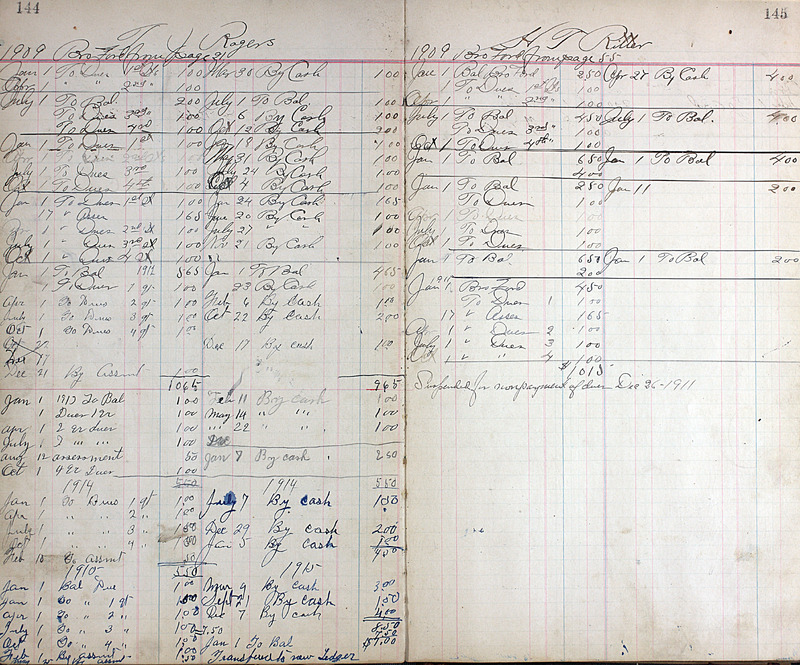 144
T. J. Rogers
1909 Bro Ford from page 21
Jan 1 To Dues 1st Qt 1 00 Mar 30 By Cash 1 00
Apr 1 " " 2nd " 1 00
July 1 To Bal. 2 00 July 1 To Bal. 1 00
To Dues 3rd " 1 00 " 6 By Cash 1 00
To Dues 4th 1 00 Oct 12 By Cash 2 00
Jan 1 To Dues 1st 1 00 Jan 18 By Cash
Apr 1 To Dues 2nd 1 00 May 31 By Cash 1 00
July 1 To Dues 3rd 1 00 July 24 By Cash 1 00
Oct 1 To Dues 4th 1 00 Oct 4 By Cash 1 00
Jan 1 To Dues 1st Qt 1 00 Jan 24 By Cash 1 65
17 " Asses 1 65 June 20 By Cash 1 00
1 " Dues 2nd Qt 1 00 July 27 " " 1 00
July 1 " Dues 3rd Qt 1 00 Nov 21 By Cash 1 00
Oct 1 " Dues 4 Qt 1 00
Jan 1 To Bal 1912 5 65 Jan 1 To Bal 4 65
1 To Dues 1 qr 1 00 23 By Cash 1 00
Apr 1 To Dues 2 qt 1 00 July 4 By Cash 1 00
July 1 To Dues 3 qt 1 00 Oct 22 By Cash 2 00
Oct 1 To Dues 4 qt 1 00
Dec 17 By cash 1 00
Dec 21 By Assmt 1 00
10 65 9 65
Jan 1 1913 To Bal 1 00 Feb 11 By cash 1 00
1 Dues 1 qr 1 00 May 14 " " 1 00
Apr 1 2 qr dues 1 00 " 22 " " 1 00
July 1 3 " " 1 00
Aug 12 assessment 50 Jan 7 By cash 2 50
Oct 1 4 Qr Dues 1 00
1914 5 50 1914 5 50
Jan 1 To Dues 1 qt 1 00 July 7 By cash 1 50
Apr 1 " " 2 " 1 00
July 1 " " 3 " 1 00 Dec 29 By cash 2 00
Oct 1 " " 4 " 1 00 Jan 5 By cash 1 00
Feb 13 To assmt 50 4 50
1915 5 50 1915
Jan 1 Bal Due 1 00 Mar 9 By cash 3 00
Jan 1 To " 1 qt 1 00 Sept 21 By cash 1 50
Apr 1 To " 2 " 1 00 Dec 7 By cash 4 00
July 1 To " 3 " 1 00 7.50 8.50
Oct 1 To " 4 " 1 00 Jan 1 To Bal $1.00
Feb 1 By assmt 50 Transfered to new Ledger
145
H T Ritter
1909 Bro Ford from page 55
Jan 1 Bal Bro Ford 2 50 Apr 27 By Cash 4 00
1 To Dues 1st Qt 1 00
Apr 1 " " 2nd " 1 00
July 1 To Bal 4 50 July 1 To Bal. 4 00
To Dues 3rd " 1 00
Oct 1 To Dues 4th " 1 00
Jan 1 To Bal 6 50 Jan 1 To Bal 4 00
4 00
Jan 1 To Bal 2 50 Jan 11 2 00
To Dues 1 00
Apr 1 To Dues 1 00
July 1 To Dues 1 00
Oct 1 To Dues 1 00
Jan 1 To Bal. 6 50 Jan 1 To Bal 2 00
2 00
Jan 1 1911 Bro Ford 4 50
To Dues 1 1 00
17 " Asses 1 65
Apr 1 " Dues 2 1 00
July 1 " Dues 3 1 00
Oct 1 " " 4 1 00
$ 10 15
Suspended for nonpayment of dues Dec 26 - 1911